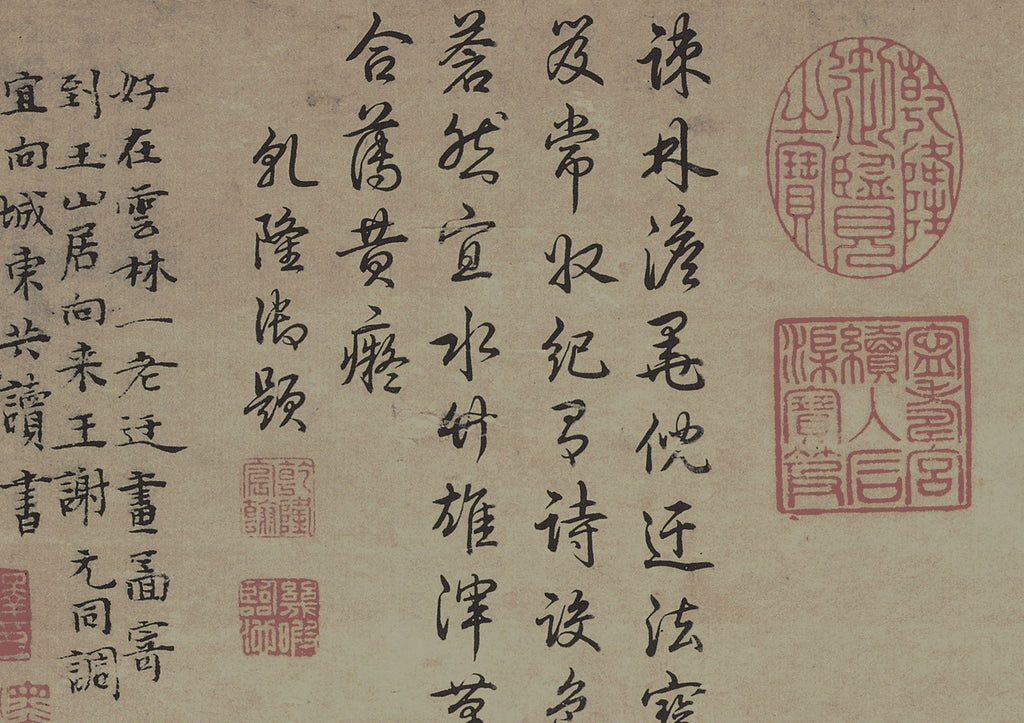 乾隆御覽之寶
寧壽宮續入石渠寶笈
疎林澹墨倪迂法
笈常收紀詩設色
蒼然宜水竹雄渾
合黃癡
乾隆御題
乾隆宸翰
幾暇臨池
好在雲林一老迂畫啚寄
到王山居向来王謝元同調
宜向城東共讀書